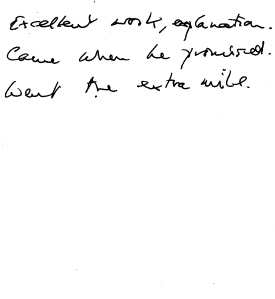 Excellent work, explanation.
Came when he promised.
Went the extra mile.